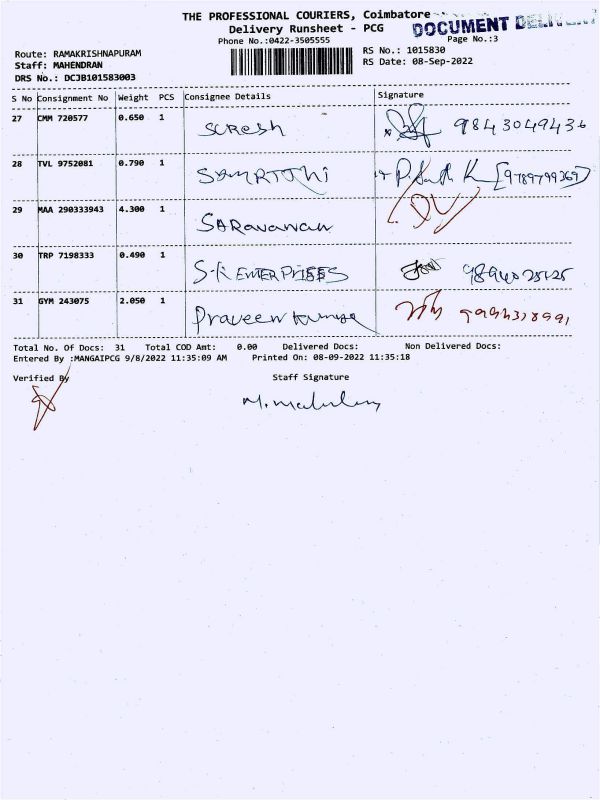 THE PROFESSIONAL COURIERS, Coimbatore
DOCUMENT
Delivery Runsheet - PCG
Phone No.:0422-3505555
Page No.:3
Route: RAMAKRISHNAPURAM
RS No.: 1015830
Staff: MAHENDRAN
RS Date: 08-Sep-2022
DRS No.: DCJB101583003
S No Consignment No Weight PCS Consignee Details Signature
27 CMM 720577 0.650 1 Suresh 9843049436
28 TVL 9752081 0.790 1 [9789799369]
29 MAA 290333943 4.300 1 Saravanan
30 TRP 7198333 0.490 1 S-K ENTERPRISES
31 GYM 243075 2.050 1 Praveen Kumar
Total No. Of Docs: 31 Total COD Amt: 0.00 Delivered Docs: Non Delivered Docs:
Entered By :MANGAIPCG 9/8/2022 11:35:09 AM Printed On: 08-09-2022 11:35:18
Verified By Staff Signature